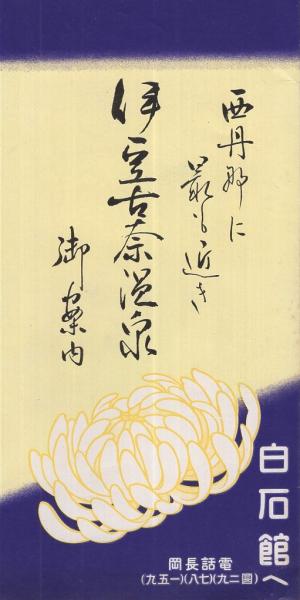 西丹那に
最も近き
伊豆古奈温泉
御案内
白石館へ
電話長岡
(二九)(七八)(一五九)